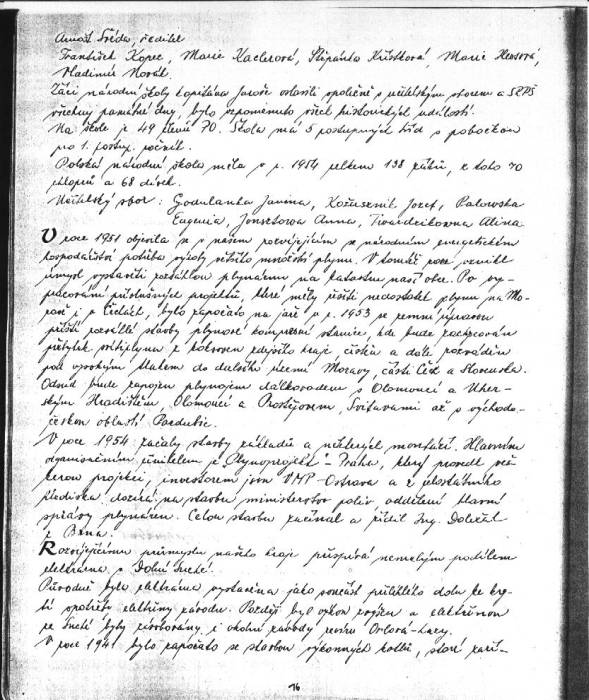 Arnošt Sréda, ředitel
František Kopec, Marie Kaclerová, Štěpánka Krůtková, Marie
Vladimír Novák.
Žáci národní školy kapitána Jaroše oslavili společně s učitelským sborem a SRPŠ
všechny památné dny, bylo vzpomenuto všech historických událostí.
Na škole je 49 členů PO. Škola má 5 postupných tříd s pobočkou
pro 1. postup. ročník.
Polská národní škola měla v r. 1954 celkem 138 žáků, z toho 70
chlapců a 68 dívek.
Učitelský sbor: Godulanka Janina, Josef, Palowska
Eugenia, Anna, Twardzikowna Alina
V roce 1951 objevila se v našem rozvíjejícím se národním energetickém
hospodářství potřeba výroby většího množství plynu. V tomtéž roce vznikl
úmysl vystavěti rozsáhlou plynárnu na katastru naší obce. Po vy-
pracování příslušných projektů, které měly řešiti nedostatek plynu na Mo-
ravě i v Čechách, bylo započato na jaře v r. 1953 se zemní úpravou
příští rozsáhlé stavby plynové kompresní stanice, kde bude zachycován
přebytek svítiplynu z koksoven zdejšího kraje, čištěn a dále rozváděn
pod vysokým tlakem do daleké území Moravy, části Čech a Slovenska.
Odsud bude zapojen plynojem dálkovodem s Olomoucí a Uher-
ským Hradištěm, Olomoucí a Prostějovem, Svitavami až s východo-
českou oblastí Pardubic.
V roce 1954 začaly stavby základů a některých montáží. Hlavním
organisačním činitelem je "Plynoprojekt" - Praha, který provedl veš-
kerou projekci, investorem jsou VHP-Ostrava a z celostátního
hlediska dozírá na stavbu ministerstvo paliv, oddělení hlavní
správy plynáren. Celou stavbu začínal a řídil Ing. Doležal
z Brna.
Rozvíjejícímu průmyslu našeho kraje přispívá nemalým podílem
elektrárna v Dolní Suché.
Původně byla elektrárna vystavěna jako součást přilehlého dolu ke kry-
tí spotřeby elektřiny závodu. Později byl výkon zvýšen a elektřinou
ze Suché byly zásobovány i okolní závody revíru Orlová-Lazy.
V roce 1941 bylo započato se stavbou výkonných kotlů, staré zaří-
76